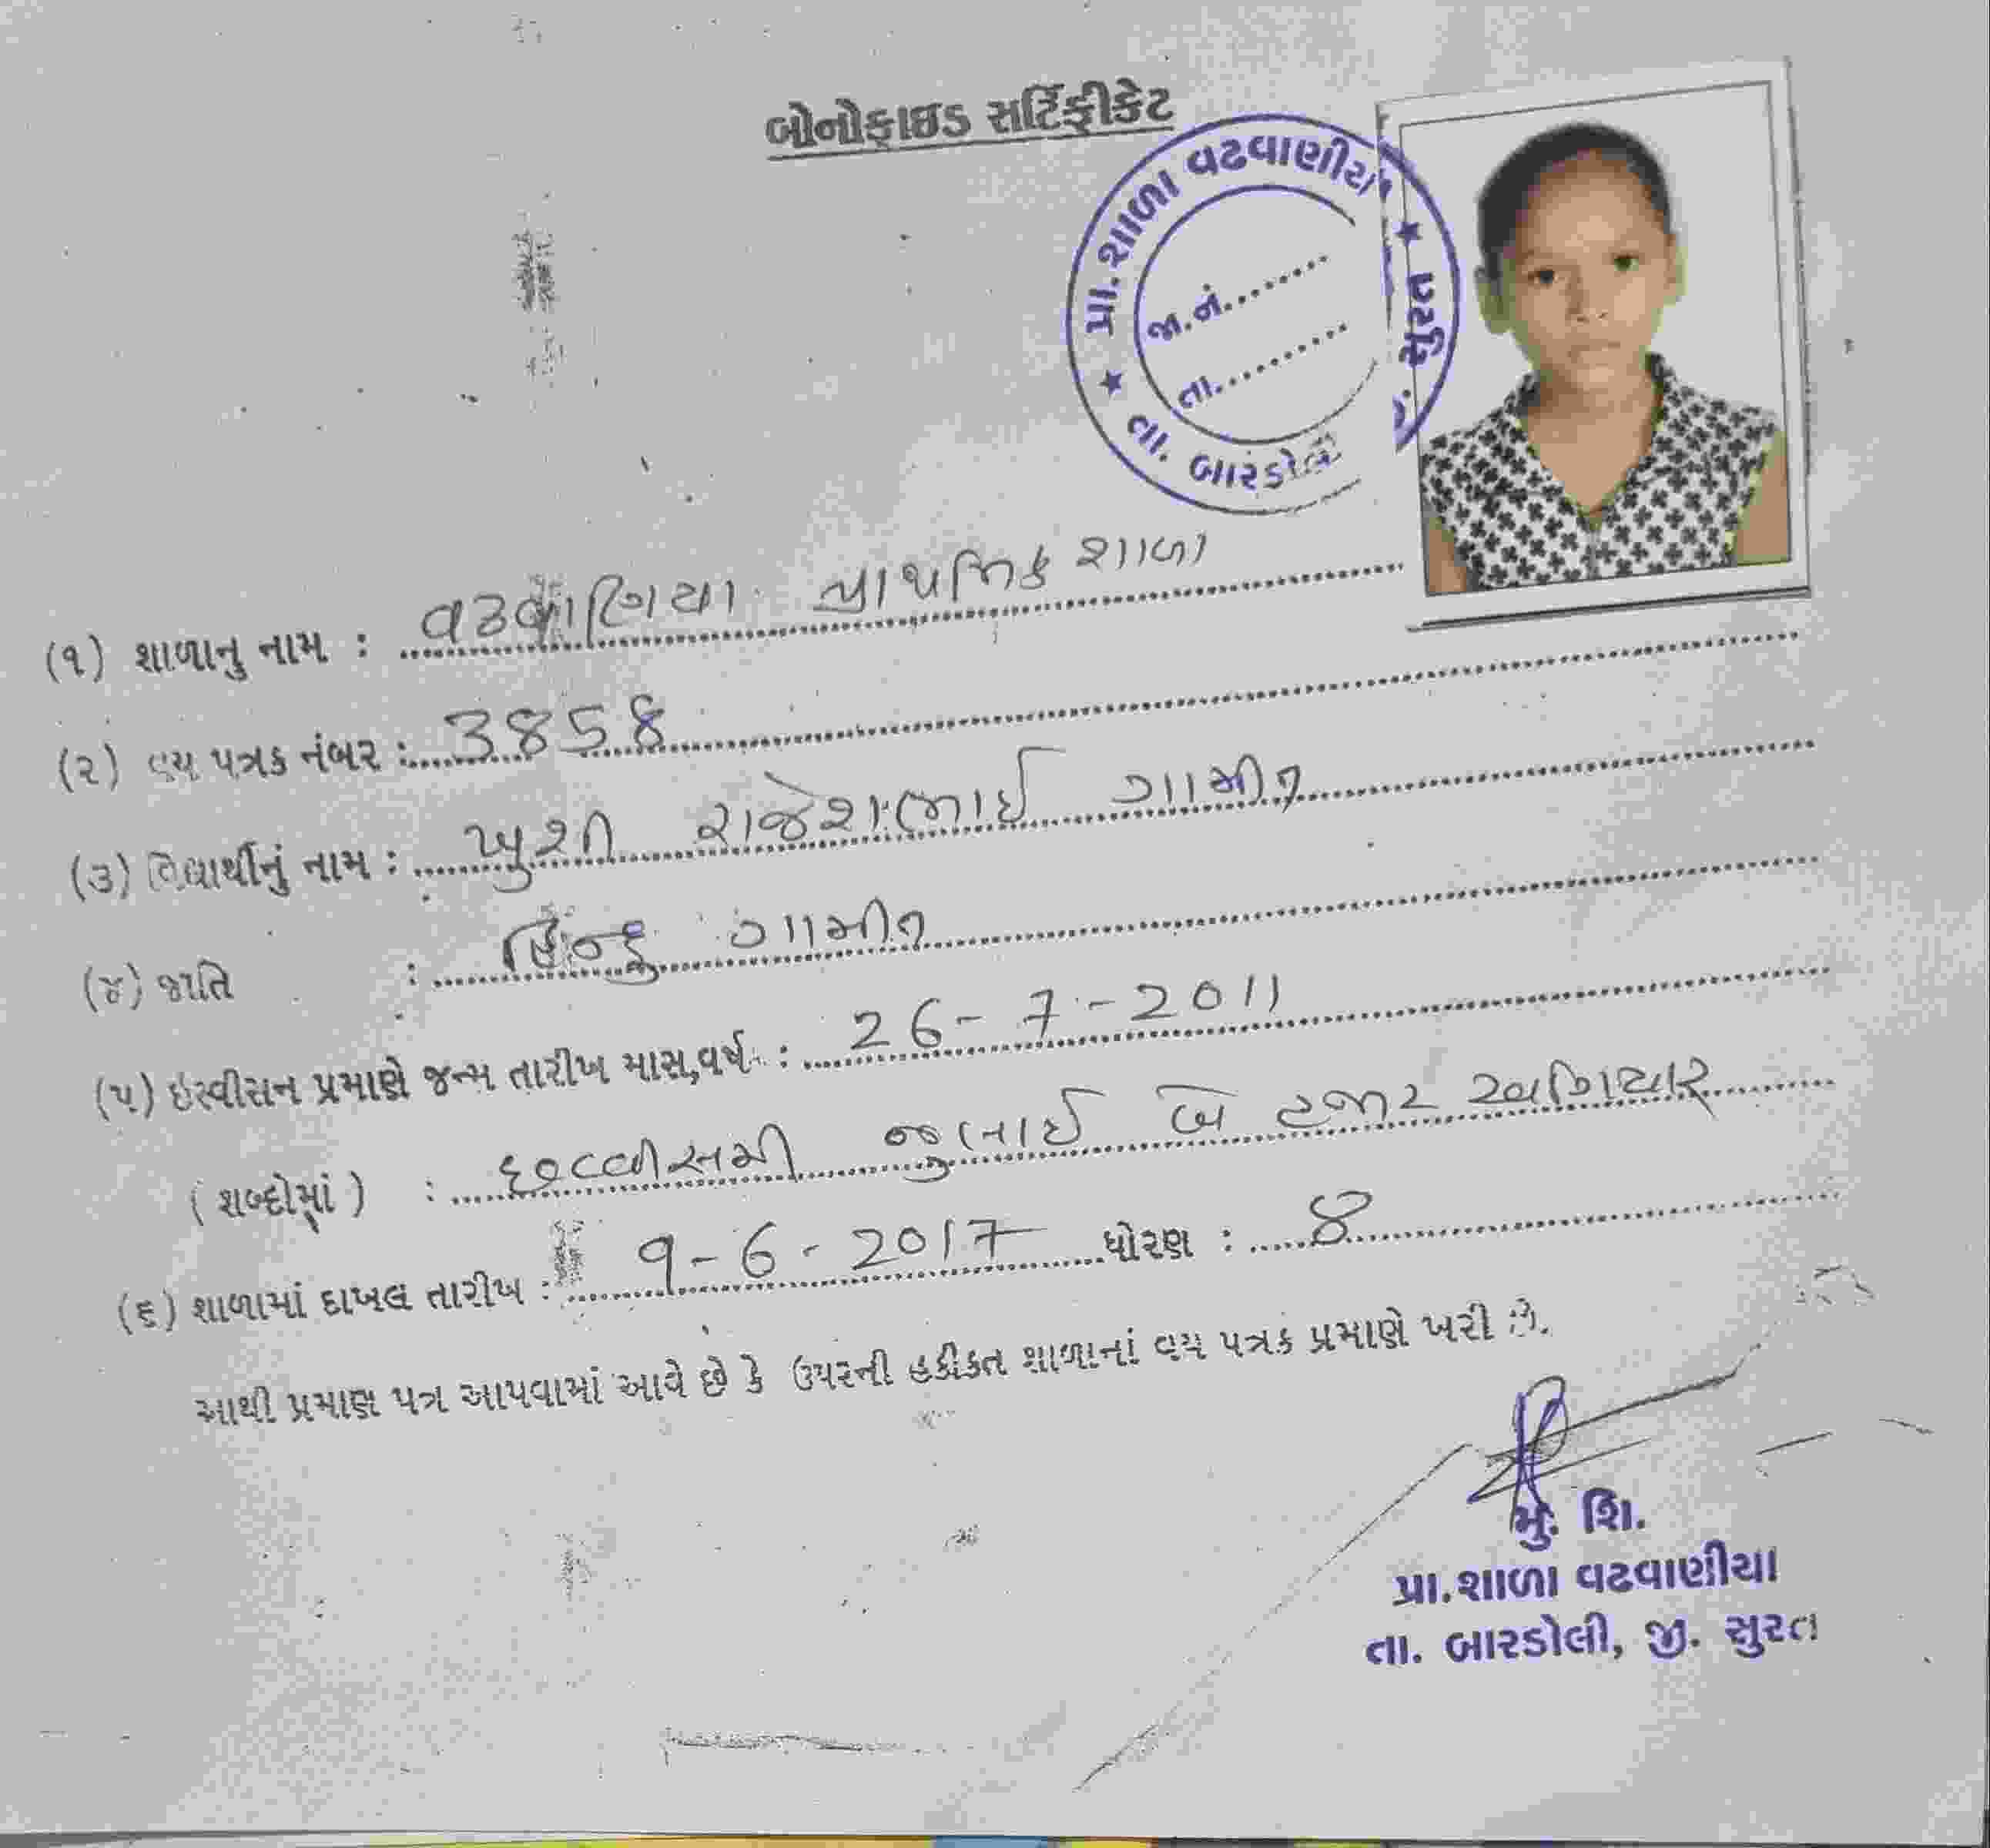 બોનોફાઇડ સર્ટિફીકેટ
પ્રા. શાળા વઢવાણીયા ★ સુરત
જા.નં.........
તા..........
★ તા. બારડોલી
(૧) શાળાનુ નામ : વઢવાણિયા પ્રાથમિક શાળા
(૨) વય પત્રક નંબર : 3૪5૪
(૩) વિદ્યાર્થીનું નામ : ખુશી રાજેશભાઈ ગામીત
(૪) જાતિ : હિન્દુ ગામીત
(૫) ઇસ્વીસન પ્રમાણે જન્મ તારીખ માસ,વર્ષ : 26-7-2011
(શબ્દોમાં) : છવ્વીસમી જુલાઈ બે હજાર અગિયાર
(૬) શાળામાં દાખલ તારીખ : ૧-6-2017 ધોરણ : ૪
આથી પ્રમાણ પત્ર આપવામાં આવે છે કે ઉપરની હકીકત શાળાનાં વય પત્રક પ્રમાણે ખરી છે.
મુ. શિ.
પ્રા.શાળા વઢવાણીયા
તા. બારડોલી, જી. સુરત